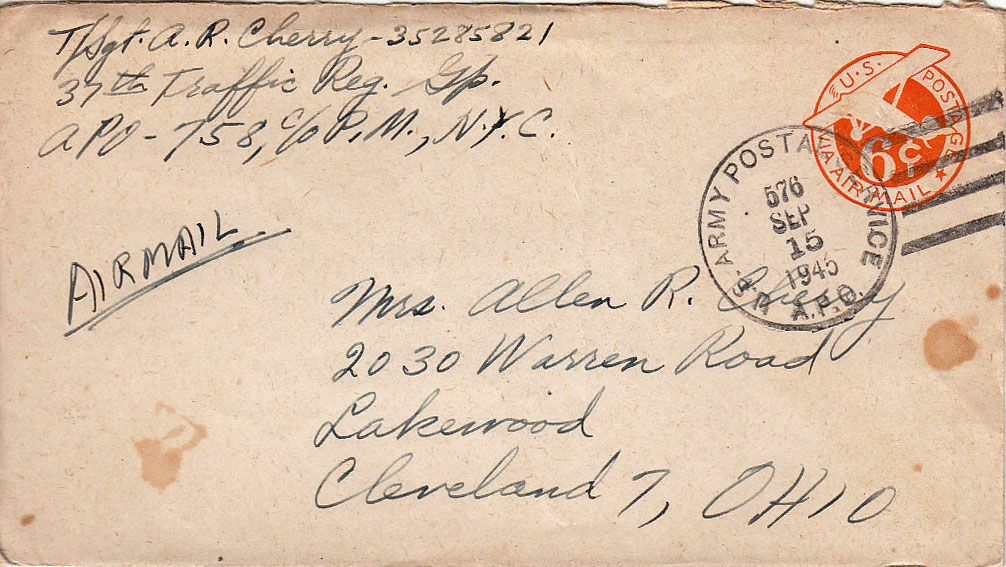 T/Sgt. A. R. Cherry - 35285821
37th Traffic Reg. Gp.
APO - 758, c/o P.M., N.Y.C.
U.S. POSTAGE
6¢
VIA AIR MAIL
U.S. ARMY POSTAL SERVICE
576
SEP
15
1945
A.P.O.
AIRMAIL
Mrs. Allen R. Cherry
2030 Warren Road
Lakewood
Cleveland 7, OHIO